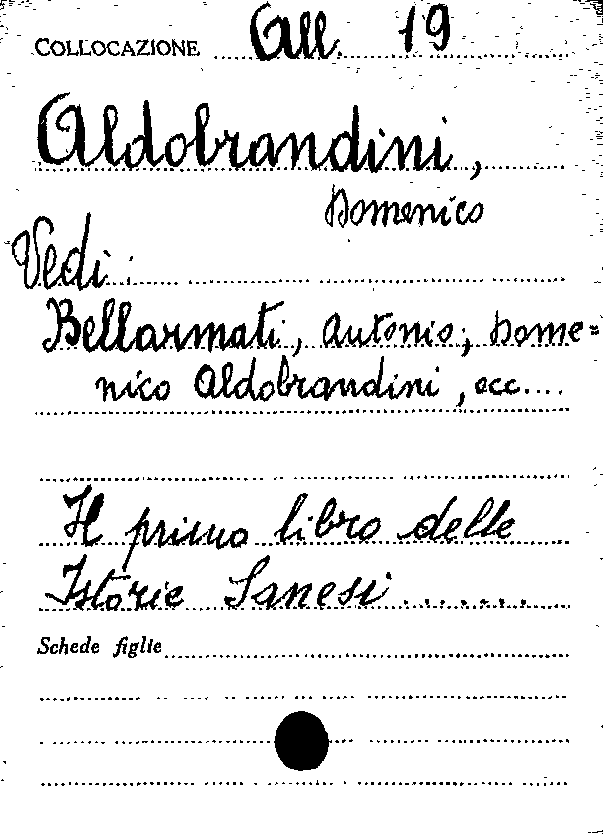 COLLOCAZIONE All. 19
Aldobrandini,
Domenico
Vedi:
Bellarmati, Antonio; Dome=
nico Aldobrandini, ecc....
Il primo libro delle
Istorie Sanesi.......
Schede figlie